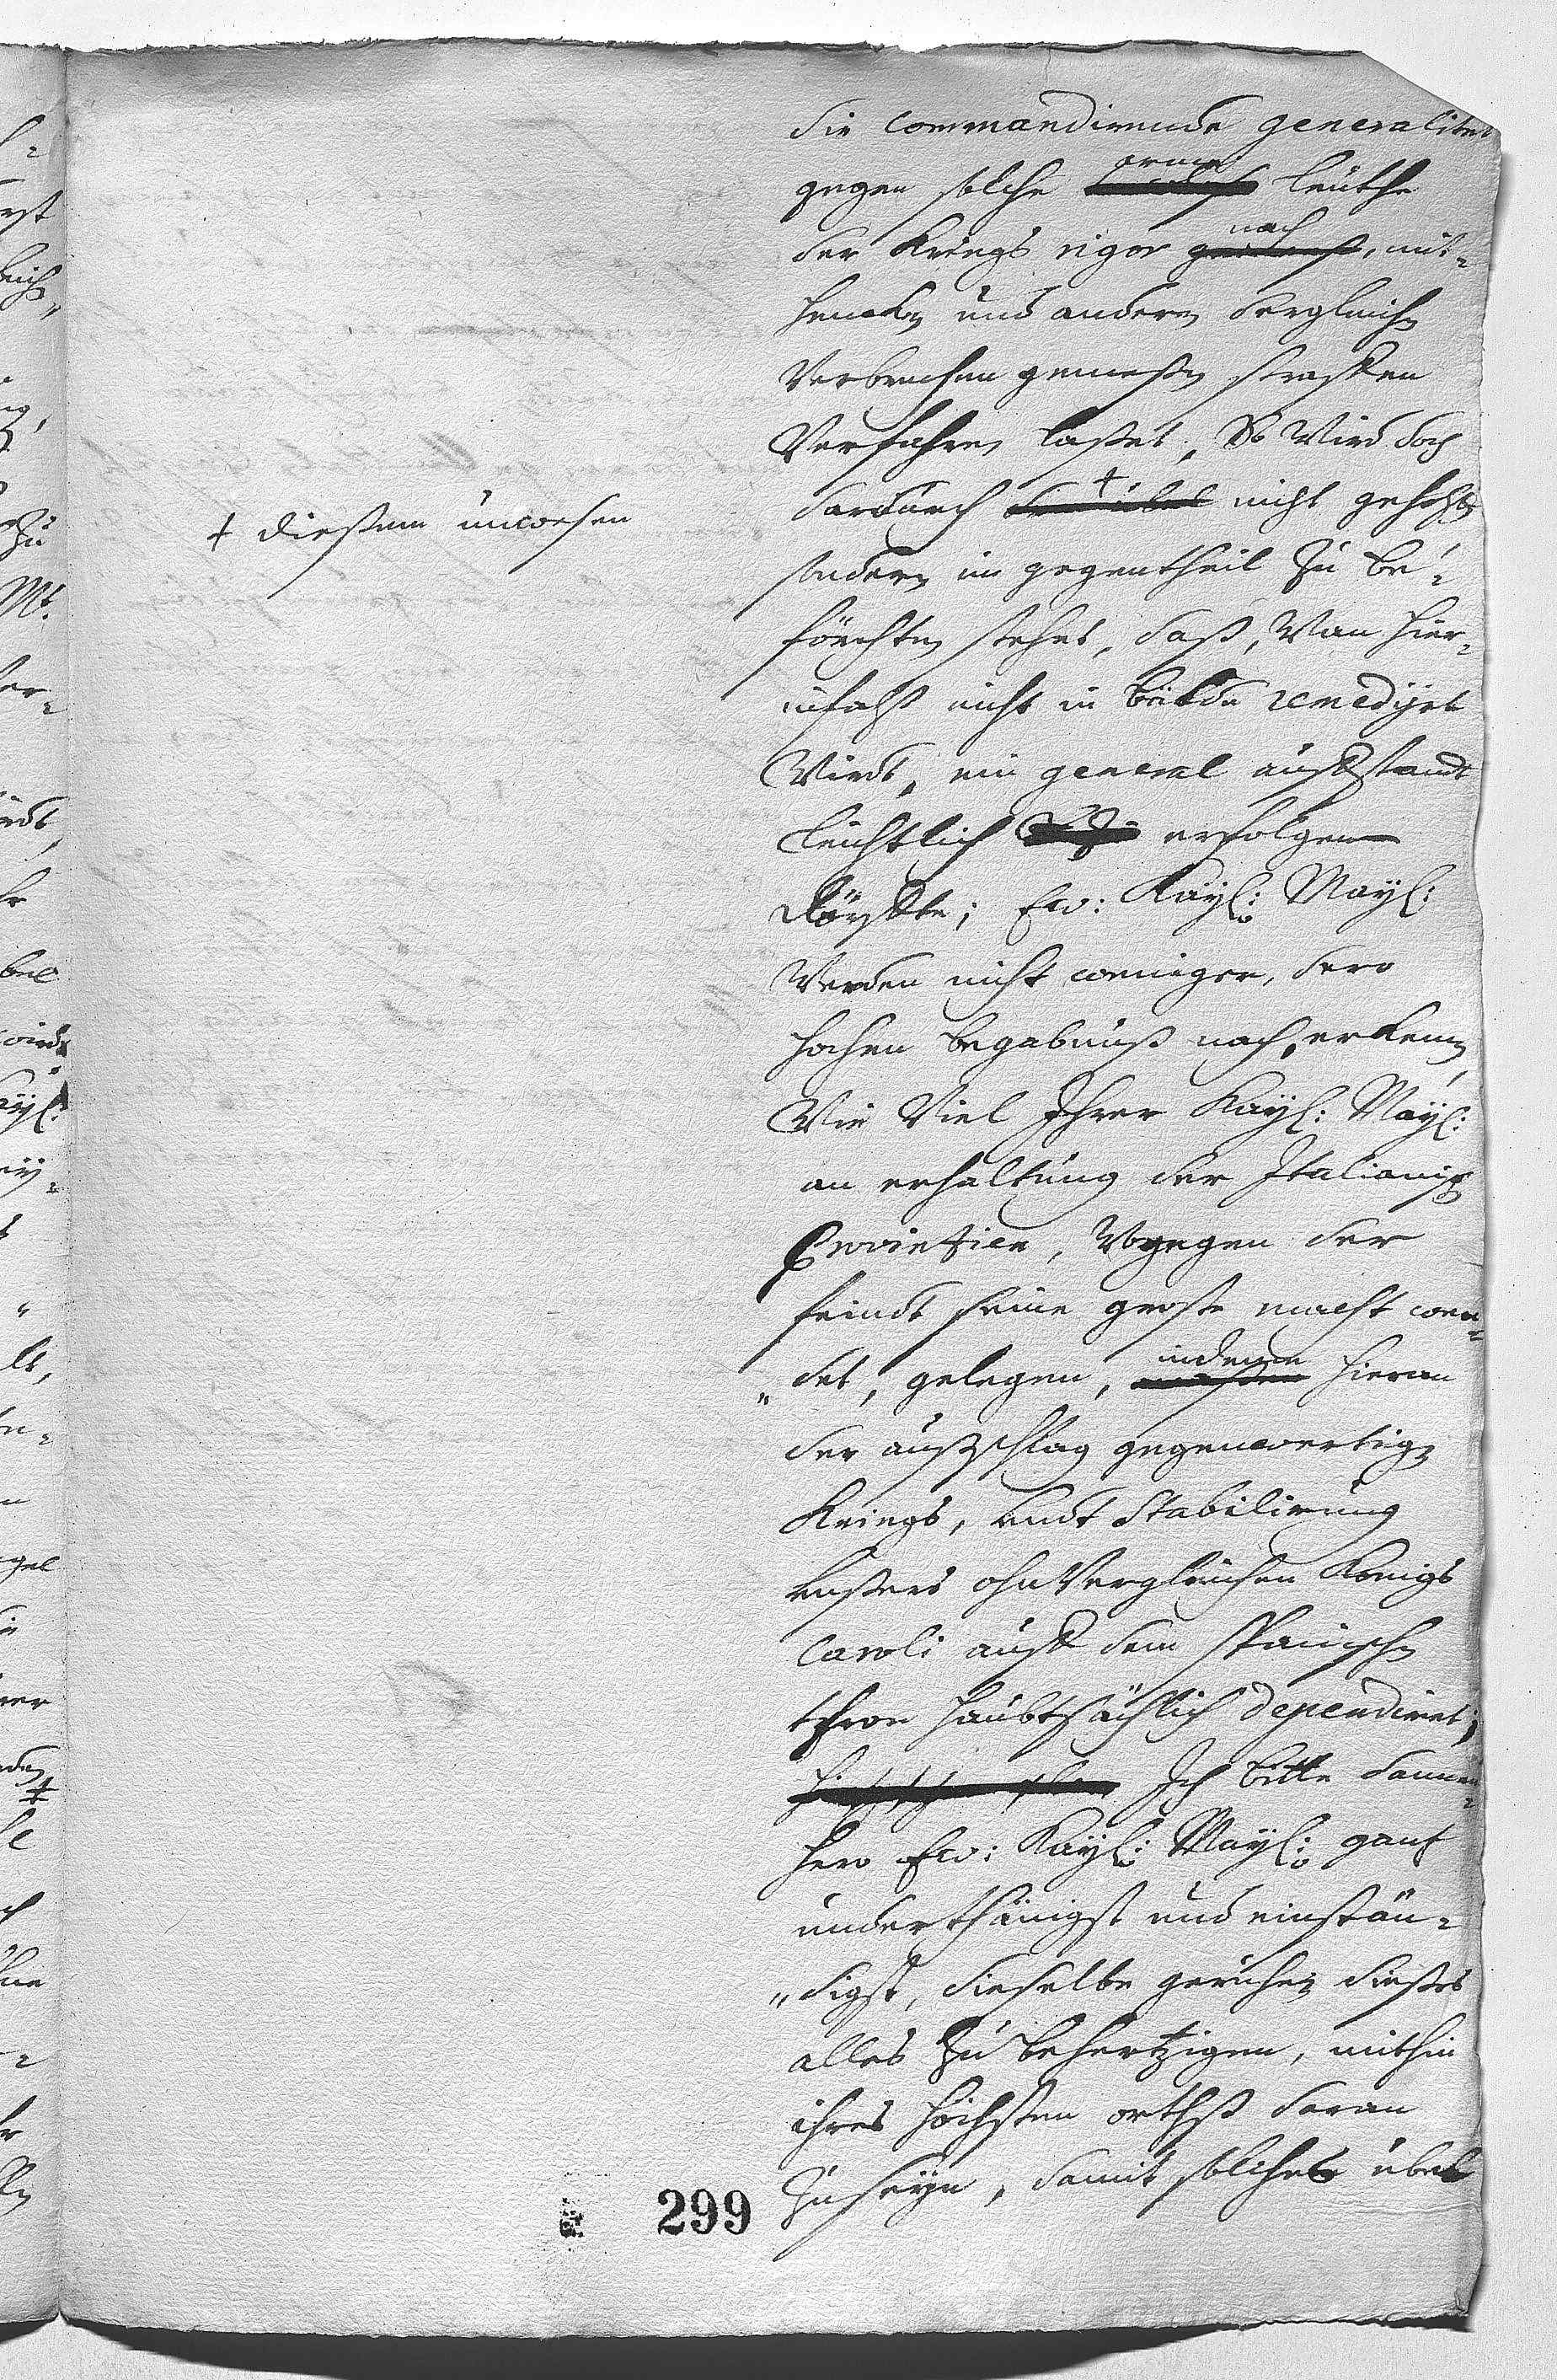 die commandirende generalitet
gegen solche arme leüthe
der Kriegs rigor nach, mit
hencken und andern dergleichen
Verbrechen gemeßen straffen
Verfahren laßet, So Wird doch
dardurch + nicht geholffen
+ dießem unwesen
sondern im gegentheil Zu be-
förchten stehet, daß, Wan hier-
infalß nicht in bälde remedijrt
Wirdt, ein general auffstandt
leichtlich erfolgen
dörffte; Ew: Kayl: Mayl:
Werden nicht weniger, dero
hohen begabnuß nach, erkennen,
Wie Viel Ihrer Kayl: Mayl:
an erhaltung der Italianischen
Provintien, Wogegen der
feindt seine große macht wen-
det, gelegen, indeme hieran
der außschlag gegenwertigen
Kriegs, undt Stabilirung
unßers ohnVergleichen Königs
Caroli auff dem Spanischen
thron haubtsächlich dependiret;
Ich bitte dannen-
hero Ew: Kayl: Mayl: gantz
underthänigst und instän-
digst, dieselbe geruhen dießes
alles Zu behertzigen, mithin
ihres höchsten orthß daran
Zu seyn, damit solches übel
299